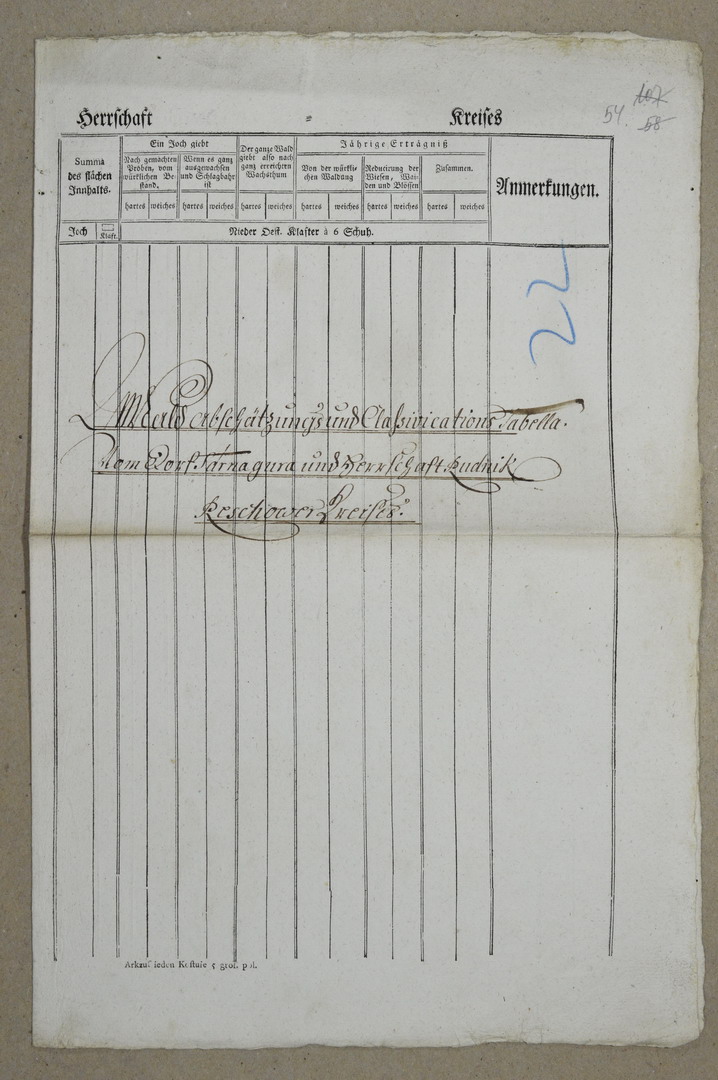 Herrschaft = Kreises
54. 107
58
Summa des flächen Innhalts.
Ein Joch giebt
Nach gemachten Proben, vom würklichen Bestand.
Wenn es ganz ausgewachsen und Schlagbahr ist
Der ganze Wald giebt also nach ganz erreichten Wachsthum
Jährige Erträgniß
Von der würklichen Waldung
Reducirung der Wiesen, Waiden und Blössen
Zusammen.
Anmerkungen.
hartes weiches hartes weiches hartes weiches hartes weiches hartes weiches hartes weiches
Joch Klaft. Nieder Oest. Klafter à 6 Schuh.
22
Wald abschätzungs und Classivications Tabella.
Vom Dorf Tarnagura und Herrschaft Rudnik
Reschower Kreises.
Arkusz jeden Kosztuie 5 grof. pol.